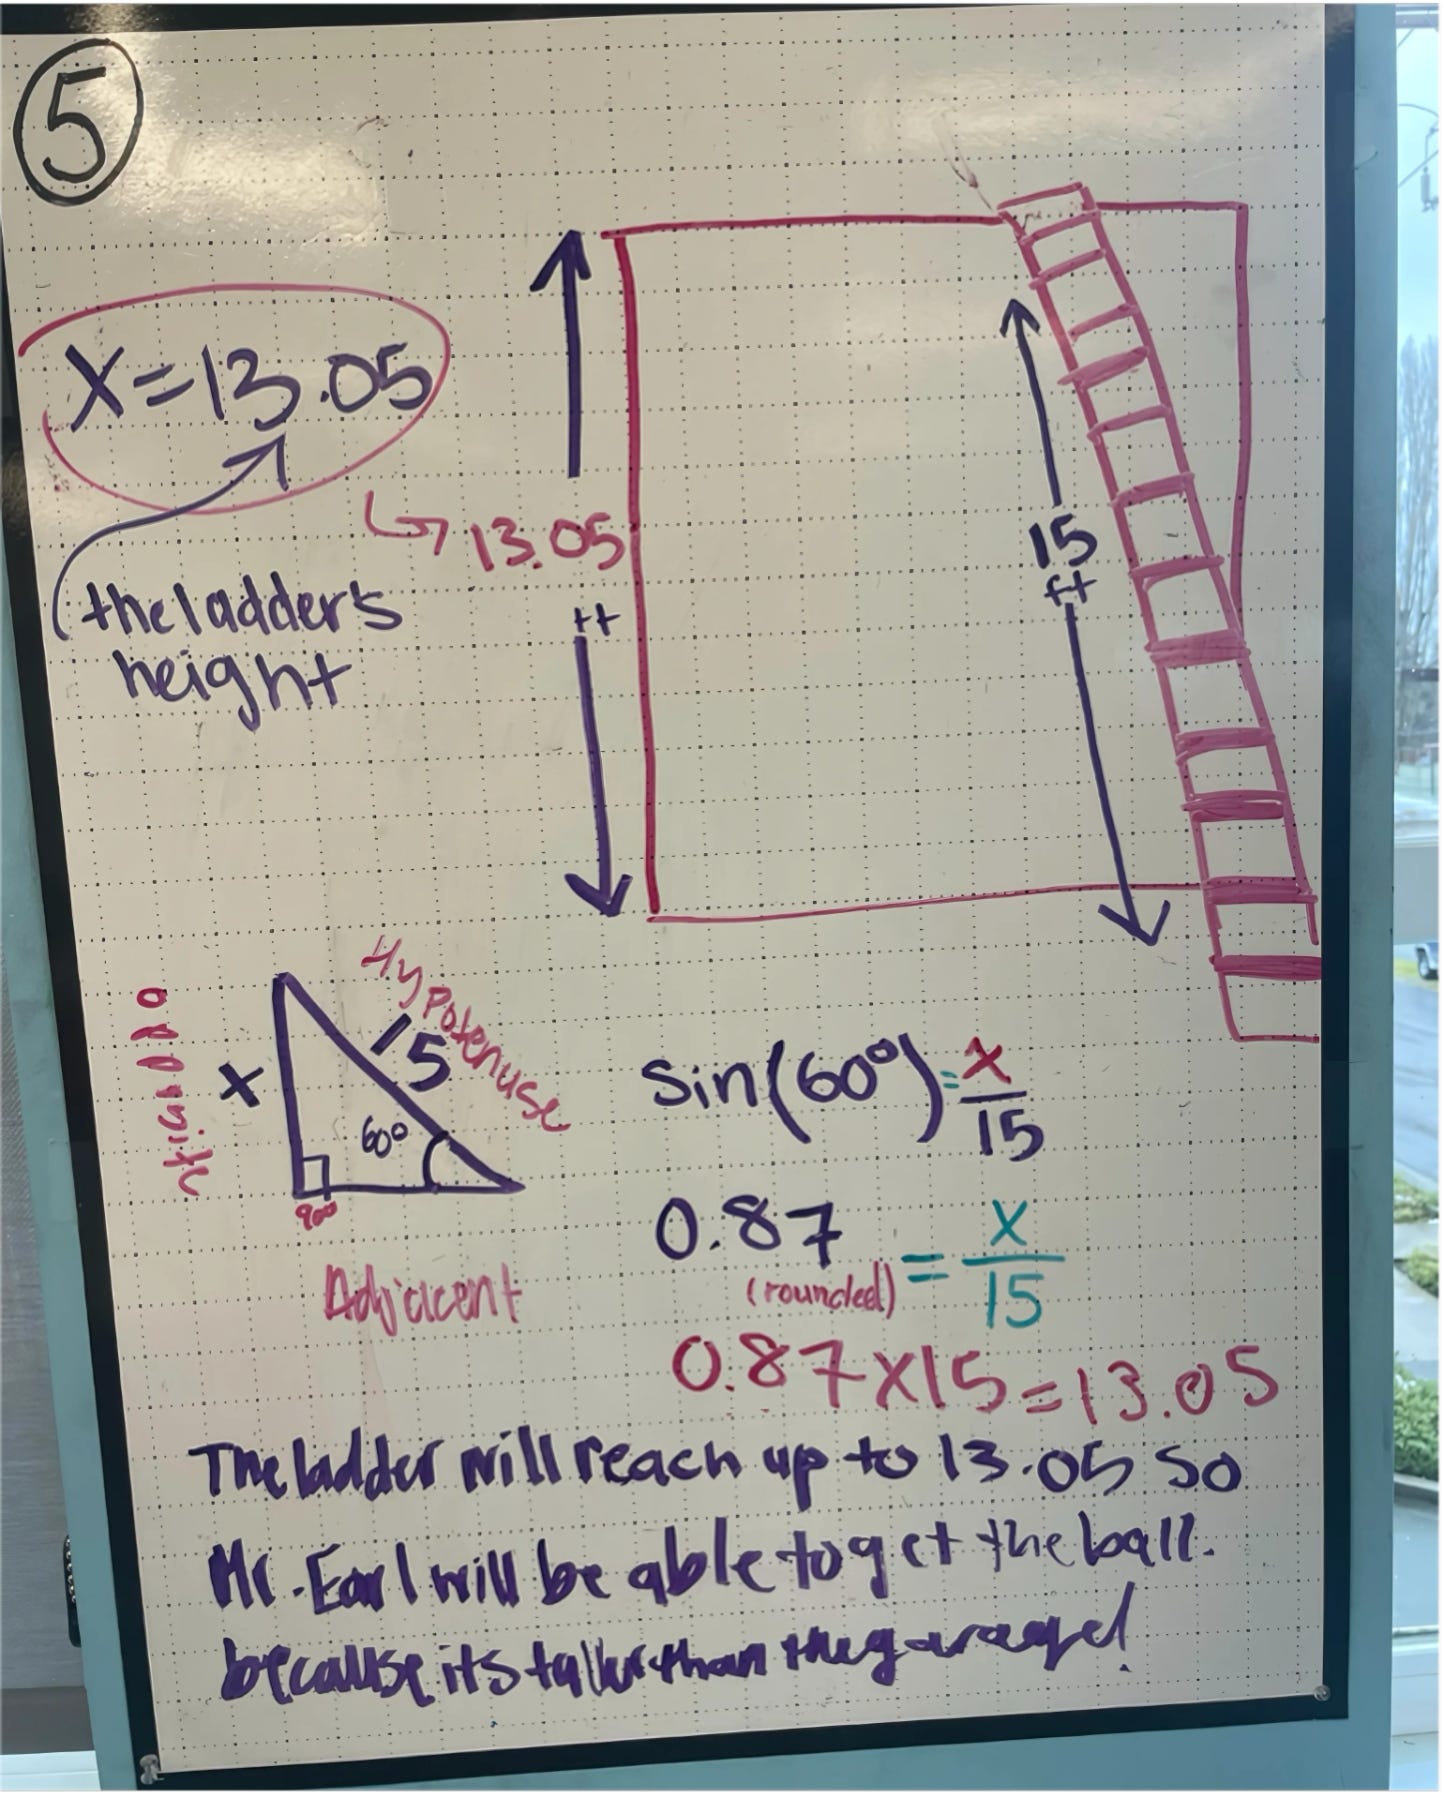 5
X=13.05
the ladder's
height
↳ 13.05
ft
15
ft
Hypotenuse
15
x
60°
90°
Adjacent
Sin(60°)=x/15
0.87 = x/15
(rounded)
0.87x15=13.05
The ladder will reach up to 13.05 so
Mr. Earl will be able to get the ball.
because its taller than the garage!